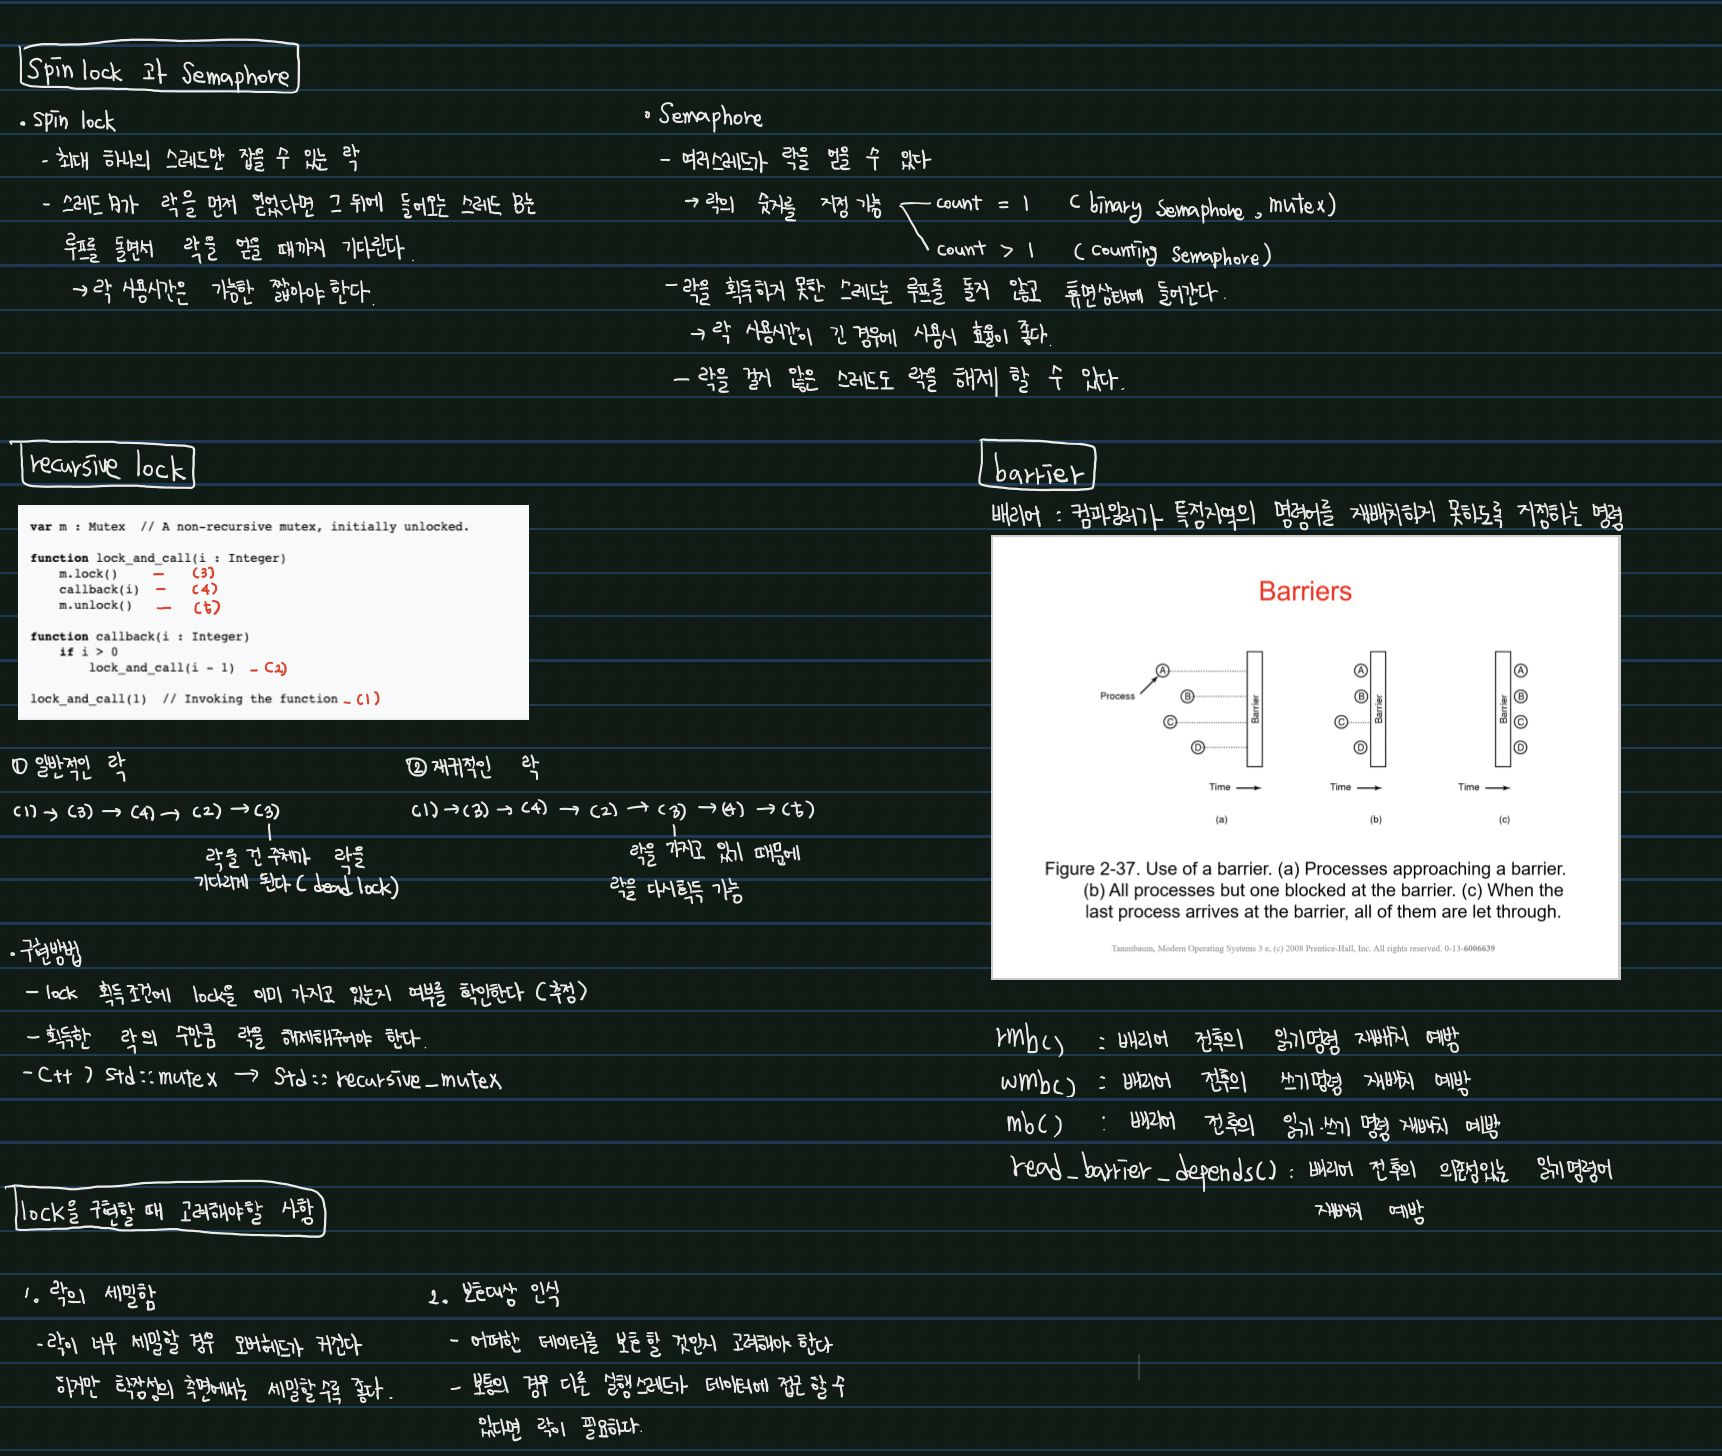 Spin lock 과 Semaphore
• spin lock
- 최대 하나의 스레드만 잡을 수 있는 락
- 스레드 A가 락을 먼저 얻었다면 그 뒤에 들어오는 스레드 B는
루프를 돌면서 락을 얻을 때까지 기다린다.
→ 락 사용시간은 가능한 짧아야 한다.
• Semaphore
- 여러스레드가 락을 얻을 수 있다
→ 락의 숫자를 지정 가능
count = 1 (binary semaphore, mutex)
count > 1 (counting semaphore)
- 락을 획득하지 못한 스레드는 루프를 돌지 않고 휴면상태에 들어간다.
→ 락 사용시간이 긴 경우에 사용시 효율이 좋다.
- 락을 걸지 않은 스레드도 락을 해제 할 수 있다.
recursive lock
var m : Mutex // A non-recursive mutex, initially unlocked.
function lock_and_call(i : Integer)
m.lock() - (3)
callback(i) - (4)
m.unlock() - (5)
function callback(i : Integer)
if i > 0
lock_and_call(i - 1) - (2)
lock_and_call(1) // Invoking the function - (1)
① 일반적인 락
(1) → (3) → (4) → (2) → (3)
락을 건 주체가 락을
기다리게 된다 (dead lock)
② 재귀적인 락
(1) → (3) → (4) → (2) → (3) → (4) → (5)
락을 가지고 있기 때문에
락을 다시획득 가능
• 구현방법
- lock 획득조건에 lock을 이미 가지고 있는지 여부를 확인한다 (추정)
- 획득한 락의 수만큼 락을 해제해주어야 한다.
- C++ ) std::mutex → std::recursive_mutex
barrier
배리어 : 컴파일러가 특정지역의 명령어를 재배치하지 못하도록 지정하는 명령
Barriers
Process
A
B
C
D
Barrier
Time
(a)
A
B
C
D
Barrier
Time
(b)
Barrier
A
B
C
D
Time
(c)
Figure 2-37. Use of a barrier. (a) Processes approaching a barrier.
(b) All processes but one blocked at the barrier. (c) When the
last process arrives at the barrier, all of them are let through.
Tanenbaum, Modern Operating Systems 3 e, (c) 2008 Prentice-Hall, Inc. All rights reserved. 0-13-6006639
rmb() : 배리어 전후의 읽기명령 재배치 예방
wmb() : 배리어 전후의 쓰기명령 재배치 예방
mb() : 배리어 전후의 읽기·쓰기 명령 재배치 예방
read_barrier_depends() : 배리어 전후의 의존성있는 읽기명령어
재배치 예방
lock을 구현할 때 고려해야할 사항
1. 락의 세밀함
- 락이 너무 세밀할 경우 오버헤드가 커진다
하지만 확장성의 측면에서는 세밀할수록 좋다.
2. 보호대상 인식
- 어떠한 데이터를 보호 할 것인지 고려해야 한다
- 보통의 경우 다른 실행스레드가 데이터에 접근 할 수
있다면 락이 필요하다.